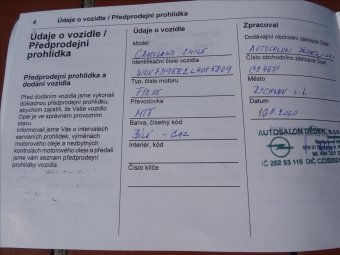 4 Údaje o vozidle / Předprodejní prohlídka
Údaje o vozidle /
Předprodejní
prohlídka
Předprodejní prohlídka a
dodání vozidla
Před dodáním vozidla jsme vykonali
důkladnou předprodejní prohlídku,
abychom zajistili, že Vaše vozidlo
Opel je ve správném provozním
stavu.
Informovali jsme Vás o intervalech
servisních prohlídek, výměnách
motorového oleje a nezbytných
kontrolách motorového oleje a předali
jsme vám seznam předprodejní
prohlídky vozidla.
Údaje o vozidle
Model
CROSSLAND SMILE
Identifikační číslo vozidla
Typ, číslo motoru
Převodovka
MT5
Barva, číselný kód
BÍLÁ - GAZ
Interiér, kód
Číslo klíče
Zpracoval
Dodávající obchodní zástupce Opel
AUTOSALON
Číslo obchodního zástupce Opel
Město
RYCHNOV
Datum
AUTOSALON DĚDEK
IČ 252 53 115 DIČ